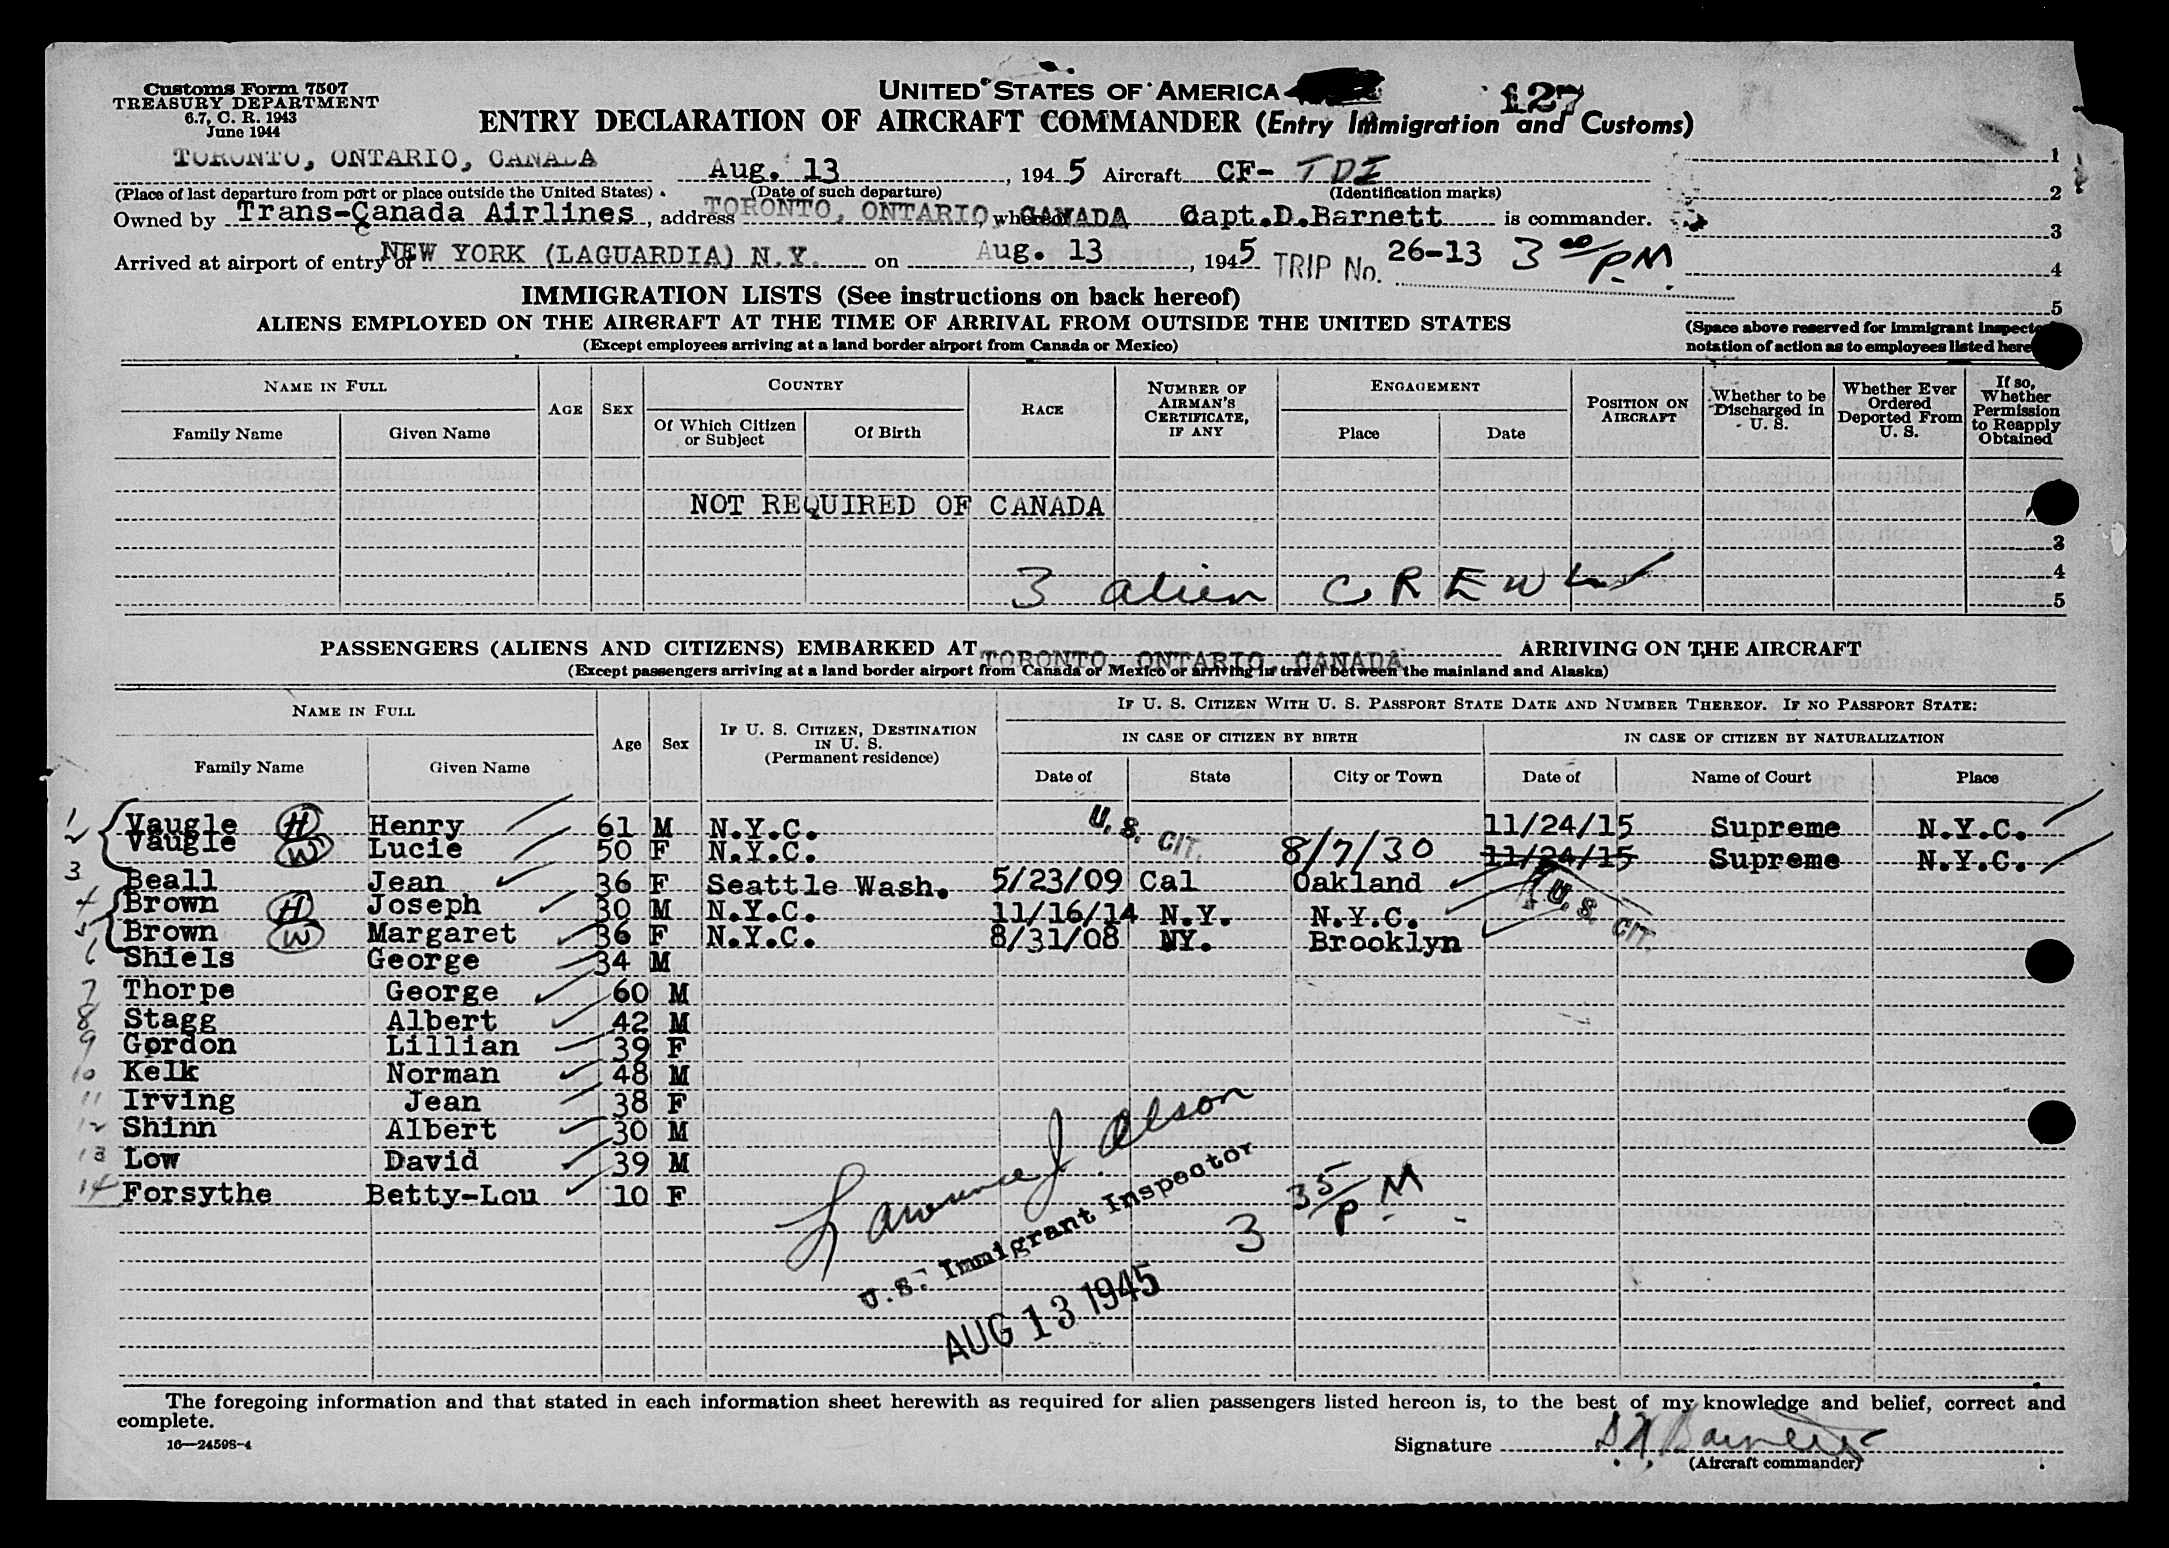 Customs Form 7507
TREASURY DEPARTMENT
6.7, C. R. 1943
June 1944
UNITED STATES OF AMERICA
127
ENTRY DECLARATION OF AIRCRAFT COMMANDER (Entry Immigration and Customs)
TORONTO, ONTARIO, CANADA Aug. 13, 1945 Aircraft CF- TDI
(Place of last departure from port or place outside the United States) (Date of such departure) (Identification marks)
Owned by Trans-Canada Airlines, address TORONTO, ONTARIO, CANADA whereof Capt.D.Barnett is commander.
Arrived at airport of entry of NEW YORK (LAGUARDIA) N.Y. on Aug. 13, 1945 TRIP No. 26-13 3 00/PM
1
2
3
4
5
IMMIGRATION LISTS (See instructions on back hereof)
ALIENS EMPLOYED ON THE AIRCRAFT AT THE TIME OF ARRIVAL FROM OUTSIDE THE UNITED STATES
(Except employees arriving at a land border airport from Canada or Mexico)
(Space above reserved for immigrant
notation of action as to employees listed
NAME IN FULL
Family Name Given Name
AGE SEX
COUNTRY
Of Which Citizen or Subject Of Birth
RACE
NUMBER OF AIRMAN'S CERTIFICATE, IF ANY
ENGAGEMENT
Place Date
POSITION ON AIRCRAFT
Whether to be Discharged in U. S.
Whether Ever Ordered Deported From U. S.
If so, Whether Permission to Reapply Obtained
NOT REQUIRED OF CANADA
3
4
3 alien CREW
5
PASSENGERS (ALIENS AND CITIZENS) EMBARKED AT TORONTO ONTARIO, CANADA ARRIVING ON THE AIRCRAFT
(Except passengers arriving at a land border airport from Canada or Mexico or arriving in travel between the mainland and Alaska)
NAME IN FULL
Family Name Given Name
Age Sex
IF U. S. CITIZEN, DESTINATION IN U. S. (Permanent residence)
IF U. S. CITIZEN WITH U. S. PASSPORT STATE DATE AND NUMBER THEREOF. IF NO PASSPORT STATE:
IN CASE OF CITIZEN BY BIRTH
IN CASE OF CITIZEN BY NATURALIZATION
Date of State City or Town Date of Name of Court Place
1 Vaugle H Henry 61 M N.Y.C. U.S. CIT. 11/24/15 Supreme N.Y.C.
2 Vaugle W Lucie 50 F N.Y.C. 8/7/30 11/24/15 Supreme N.Y.C.
3 Beall Jean 36 F Seattle Wash. 5/23/09 Cal Oakland
4 Brown H Joseph 30 M N.Y.C. 11/16/14 N.Y. N.Y.C. U.S. CIT.
5 Brown W Margaret 36 F N.Y.C. 8/31/08 NY. Brooklyn
6 Shiels George 34 M
7 Thorpe George 60 M
8 Stagg Albert 42 M
9 Gordon Lillian 39 F
10 Kelk Norman 48 M
11 Irving Jean 38 F
12 Shinn Albert 30 M
13 Low David 39 M
14 Forsythe Betty-Lou 10 F
Lawrence J. Olson
U.S. Immigrant Inspector
3 35/PM
AUG 13 1945
The foregoing information and that stated in each information sheet herewith as required for alien passengers listed hereon is, to the best of my knowledge and belief, correct and
complete.
16—24598-4
Signature D.N. Barnett
(Aircraft commander)